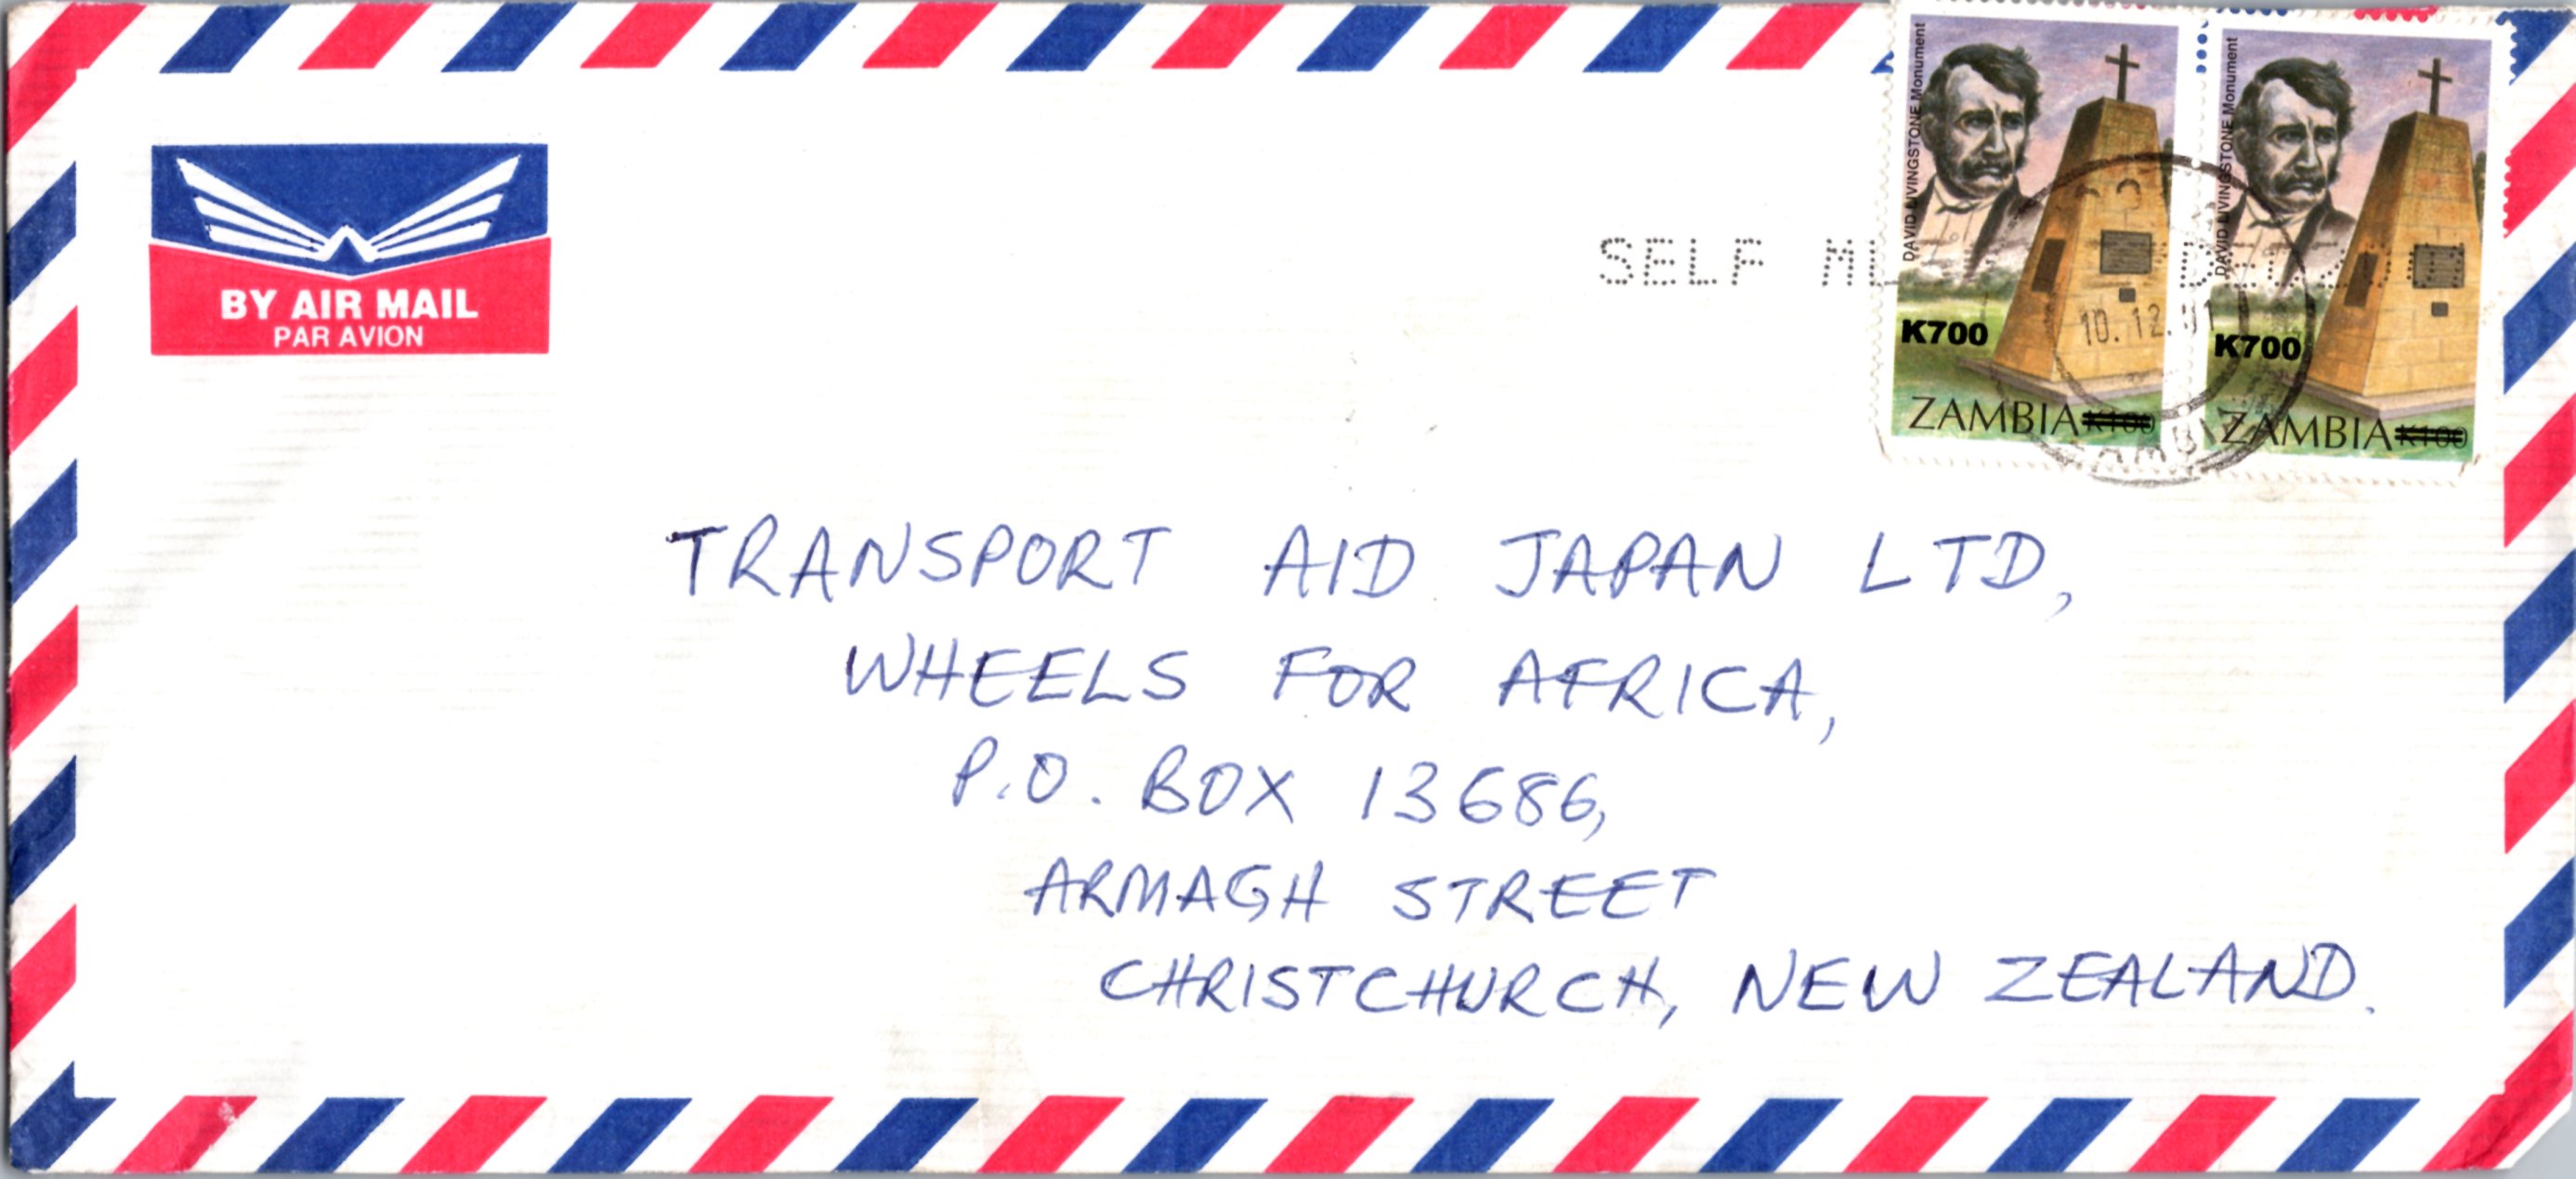 BY AIR MAIL
PAR AVION
SELF
DAVID LIVINGSTONE Monument
K700
ZAMBIA K100
DAVID LIVINGSTONE Monument
K700
ZAMBIA K100
10.12.01
TRANSPORT AID JAPAN LTD,
WHEELS FOR AFRICA,
P.O. BOX 13686,
ARMAGH STREET
CHRISTCHURCH, NEW ZEALAND.